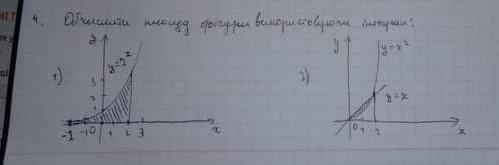 4. Обчислити площу фігури використовуючи інтеграл:
1) y
y=2^x
3
2
1
-2 -1 0 1 2 3 x
2) y
y=x^2
y=x
0 1 2 x